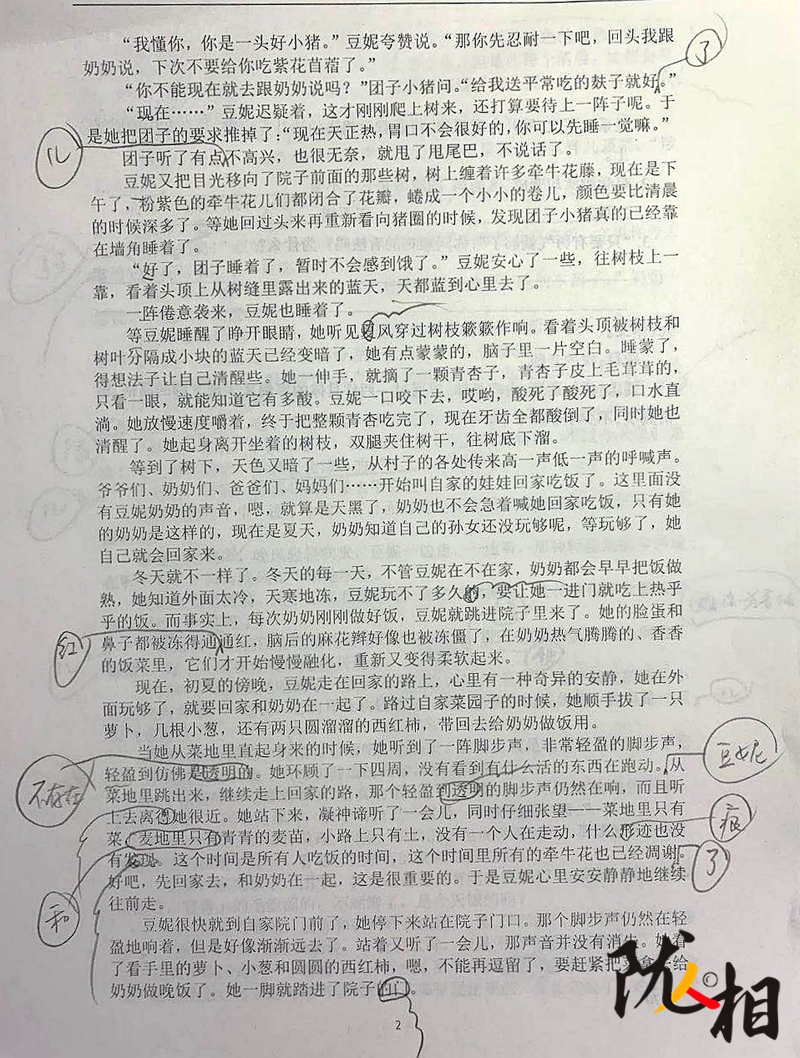 “我懂你，你是一头好小猪。”豆妮夸赞说。“那你先忍耐一下吧，回头我跟
奶奶说，下次不要给你吃紫花苜蓿了。”
“你不能现在就去跟奶奶说吗？”团子小猪问。“给我送平常吃的麸子就好。”
了
“现在……”豆妮迟疑着，这才刚刚爬上树来，还打算要待上一阵子呢。于
是她把团子的要求推掉了：“现在天正热，胃口不会很好的，你可以先睡一觉嘛。”
儿
团子听了有点不高兴，也很无奈，就甩了甩尾巴，不说话了。
豆妮又把目光移向了院子前面的那些树，树上缠着许多牵牛花藤，现在是下
午了，粉紫色的牵牛花儿们都闭合了花瓣，蜷成一个小小的卷儿，颜色要比清晨
的时候深多了。等她回过头来再重新看向猪圈的时候，发现团子小猪真的已经靠
在墙角睡着了。
“好了，团子睡着了，暂时不会感到饿了。”豆妮安心了一些，往树枝上一
靠，看着头顶上从树缝里露出来的蓝天，天都蓝到心里去了。
一阵倦意袭来，豆妮也睡着了。
等豆妮睡醒了睁开眼睛，她听见风穿过树枝簌簌作响。看着头顶被树枝和
树叶分隔成小块的蓝天已经变暗了，她有点蒙蒙的，脑子里一片空白。睡蒙了，
得想法子让自己清醒些。她一伸手，就摘了一颗青杏子，青杏子皮上毛茸茸的，
只看一眼，就能知道它有多酸。豆妮一口咬下去，哎哟，酸死了酸死了，口水直
淌。她放慢速度嚼着，终于把整颗青杏吃完了，现在牙齿全都酸倒了，同时她也
清醒了。她起身离开坐着的树枝，双腿夹住树干，往树底下溜。
等到了树下，天色又暗了一些，从村子的各处传来高一声低一声的呼喊声。
爷爷们、奶奶们、爸爸们、妈妈们……开始叫自家的娃娃回家吃饭了。这里面没
有豆妮奶奶的声音，嗯，就算是天黑了，奶奶也不会急着喊她回家吃饭，只有她
的奶奶是这样的，现在是夏天，奶奶知道自己的孙女还没玩够呢，等玩够了，她
自己就会回家来。
冬天就不一样了。冬天的每一天，不管豆妮在不在家，奶奶都会早早把饭做
熟，她知道外面太冷，天寒地冻，豆妮玩不了多久的，要让她一进门就吃上热乎
乎的饭。而事实上，每次奶奶刚刚做好饭，豆妮就跳进院子里来了。她的脸蛋和
鼻子都被冻得通通红，脑后的麻花辫好像也被冻僵了，在奶奶热气腾腾的、香香
红
的饭菜里，它们才开始慢慢融化，重新又变得柔软起来。
现在，初夏的傍晚，豆妮走在回家的路上，心里有一种奇异的安静，她在外
面玩够了，就要回家和奶奶在一起了。路过自家菜园子的时候，她顺手拔了一只
萝卜，几根小葱，还有两只圆溜溜的西红柿，带回去给奶奶做饭用。
当她从菜地里直起身来的时候，她听到了一阵脚步声，非常轻盈的脚步声，
轻盈到仿佛是透明的。她环顾了一下四周，没有看到有什么活的东西在跑动。从
豆妮
不存在
菜地里跳出来，继续走上回家的路，那个轻盈到透明的脚步声仍然在响，而且听
上去离得她很近。她站下来，凝神谛听了一会儿，同时仔细张望——菜地里只有
菜，麦地里只有青青的麦苗，小路上只有土，没有一个人在走动，什么形迹也没
痕
有发现。这个时间是所有人吃饭的时间，这个时间里所有的牵牛花也已经凋谢。
了
好吧，先回家去，和奶奶在一起，这是很重要的。于是豆妮心里安安静静地继续
和
往前走。
豆妮很快就到自家院门前了，她停下来站在院子门口。那个脚步声仍然在轻
盈地响着，但是好像渐渐远去了。站着又听了一会儿，那声音并没有消失。她看
了看手里的萝卜、小葱和圆圆的西红柿，嗯，不能再逗留了，要赶紧把菜拿去给
奶奶做晚饭了。她一脚就踏进了院子的门。
2
陇人相